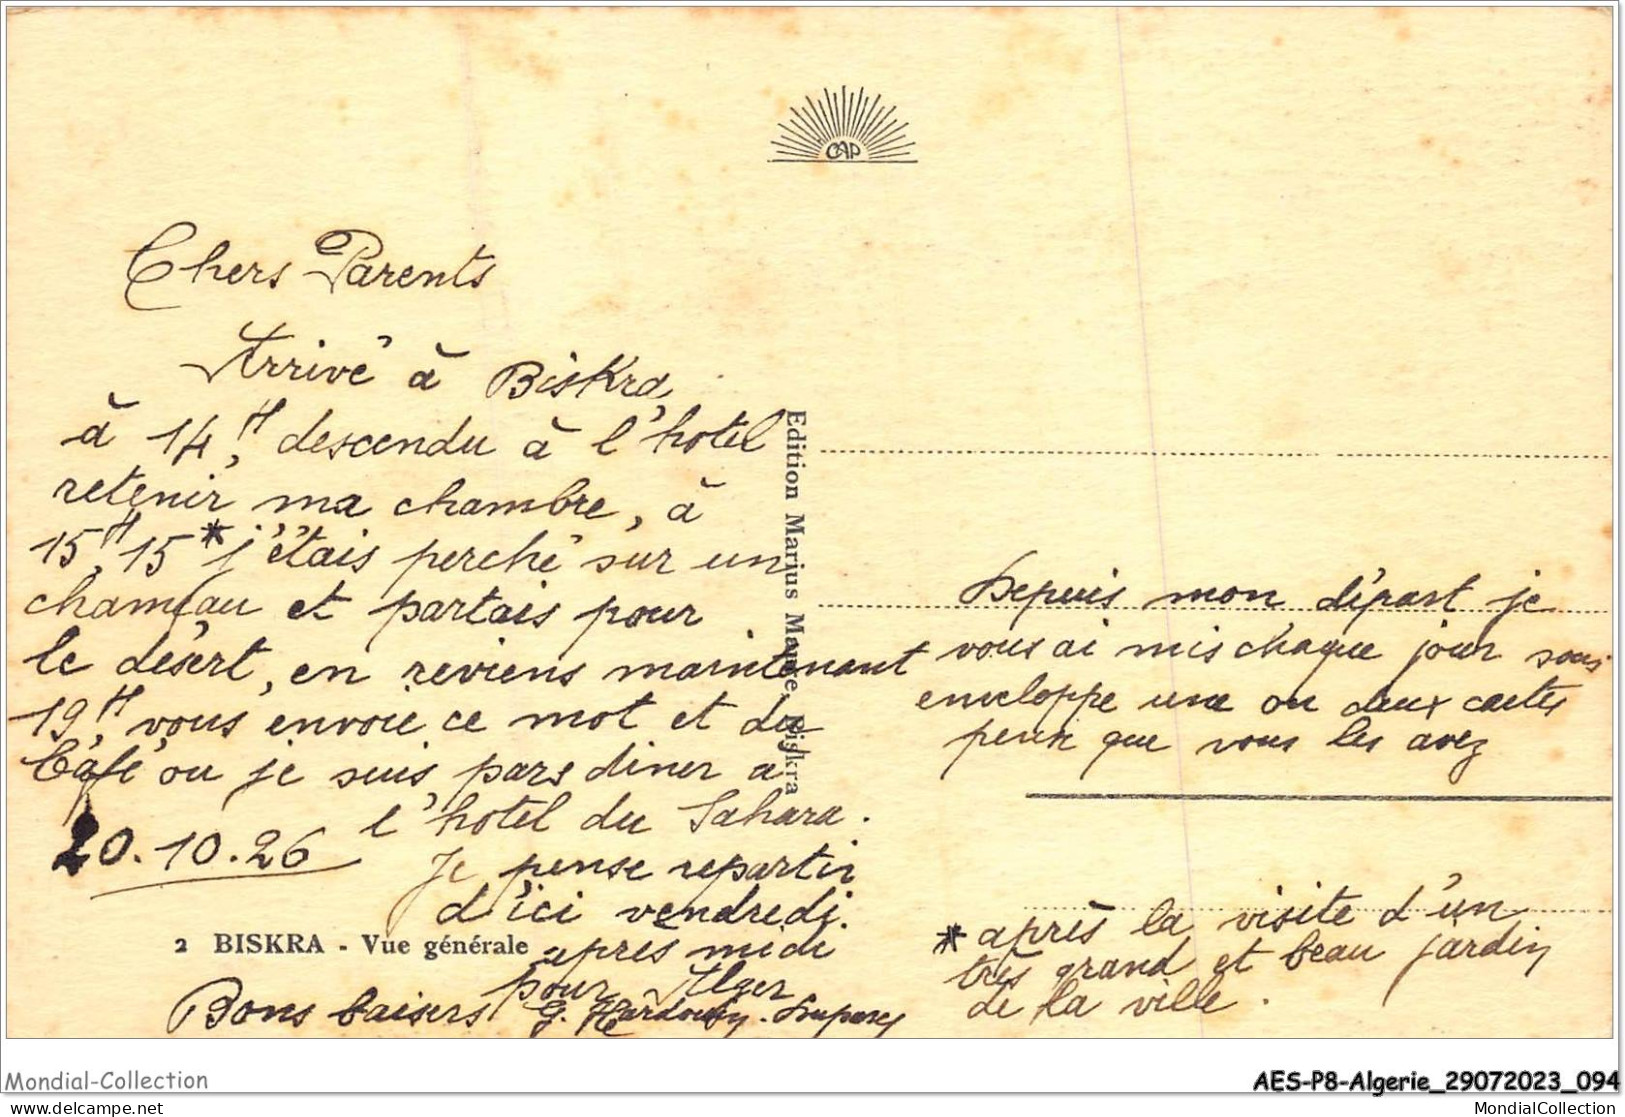 CAP
Chers Parents
Arrivé à Biskra,
à 14H, descendu à l'hotel
retenir ma chambre, à
15H,15 * j'étais perché sur un
chameau et partais pour
le désert, en reviens maintenant
19H, vous envoie ce mot et du
Café où je suis, pars diner a
l'hotel du Sahara.
20.10.26
Je pense repartir
d'ici vendredi.
apres midi
pour Alger
Bons baisers G.
2 BISKRA - Vue générale
Edition Marius Maure, Biskra
Depuis mon départ je
vous ai mis chaque jour sous
enveloppe une ou deux cartes
peux que vous les avez
* après la visite d'un
très grand et beau jardin
de la ville.
Mondial-Collection
AES-P8-Algerie_29072023_094
delcampe.net
MondialCollection